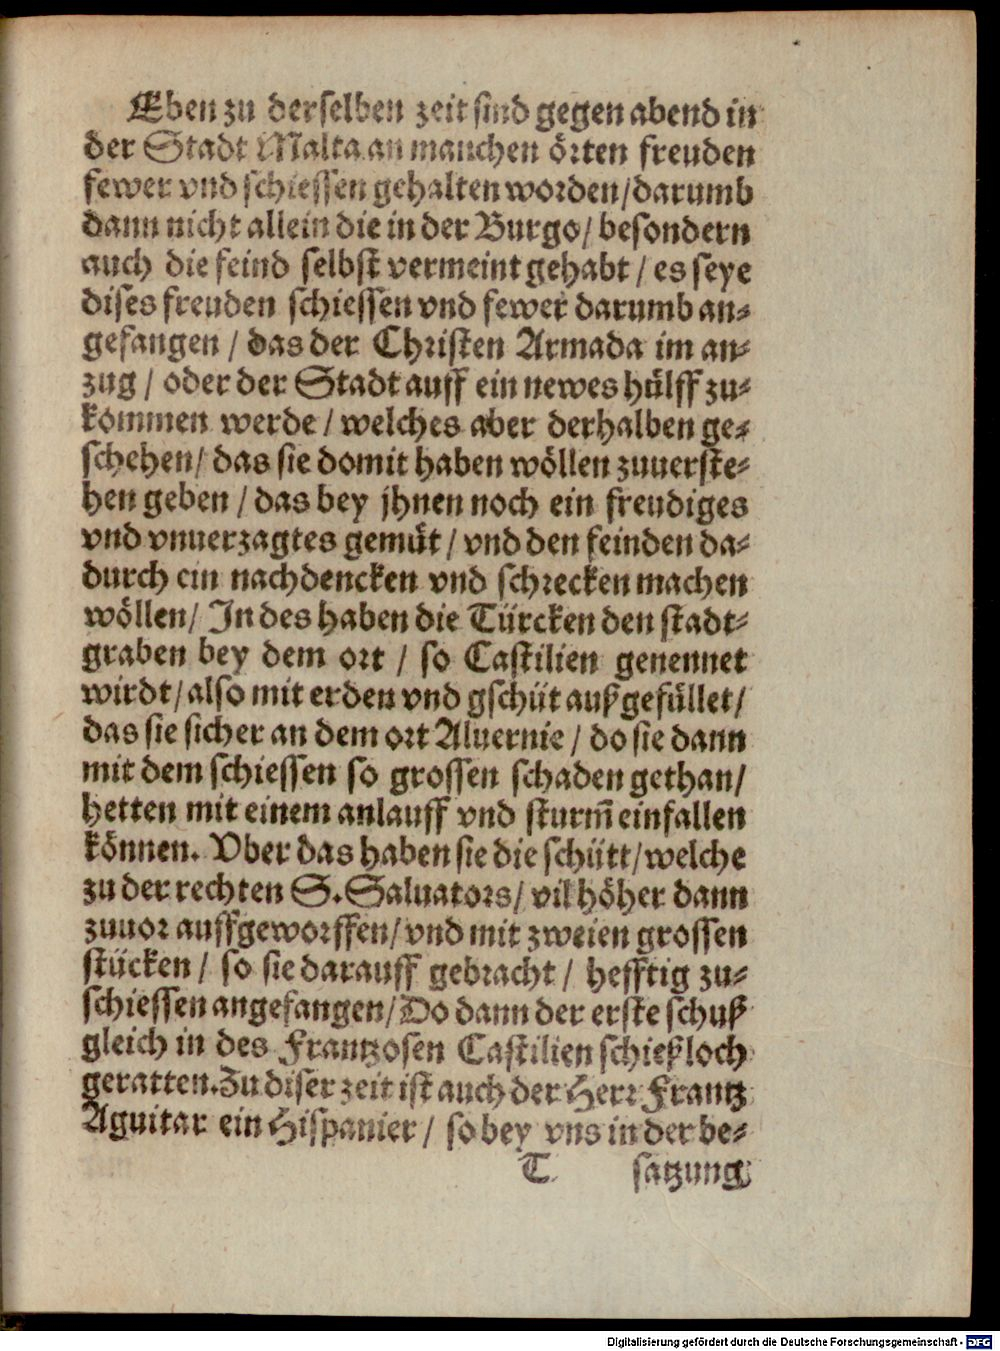 Eben zu derselben zeit sind gegen abend in
der Stadt Malta an manchen örten freuden
fewer vnd schiessen gehalten worden/darumb
dann nicht allein die in der Burgo/ besondern
auch die feind selbst vermeint gehabt / es seye
dises freuden schiessen vnd fewer darumb an⸗
gefangen / das der Christen Armada im an⸗
zug / oder der Stadt auff ein newes hülff zu⸗
kommen werde / welches aber derhalben ge⸗
schehen/ das sie domit haben wöllen zuuerste⸗
hen geben / das bey jhnen noch ein freudiges
vnd vnuerzagtes gemüt / vnd den feinden da⸗
durch ein nachdencken vnd schrecken machen
wöllen/ In des haben die Türcken den stadt⸗
graben bey dem ort / so Castilien genennet
wirdt/ also mit erden vnd gschüt außgefüllet/
das sie sicher an dem ort Aluernie / do sie dann
mit dem schiessen so grossen schaden gethan/
hetten mit einem anlauff vnd sturm̃ einfallen
können. Vber das haben sie die schütt/welche
zu der rechten S. Saluators/ vil höher dann
zuuor auffgeworffen/ vnd mit zweien grossen
stücken / so sie darauff gebracht / hefftig zu⸗
schiessen angefangen/ Do dann der erste schuß
gleich in des Frantzosen Castilien schießloch
geratten. Zu diser zeit ist auch der Herr Frantz
Aguitar ein Hispanier / so bey vns in der be⸗
T satzung
Digitalisierung gefördert durch die Deutsche Forschungsgemeinschaft - DFG